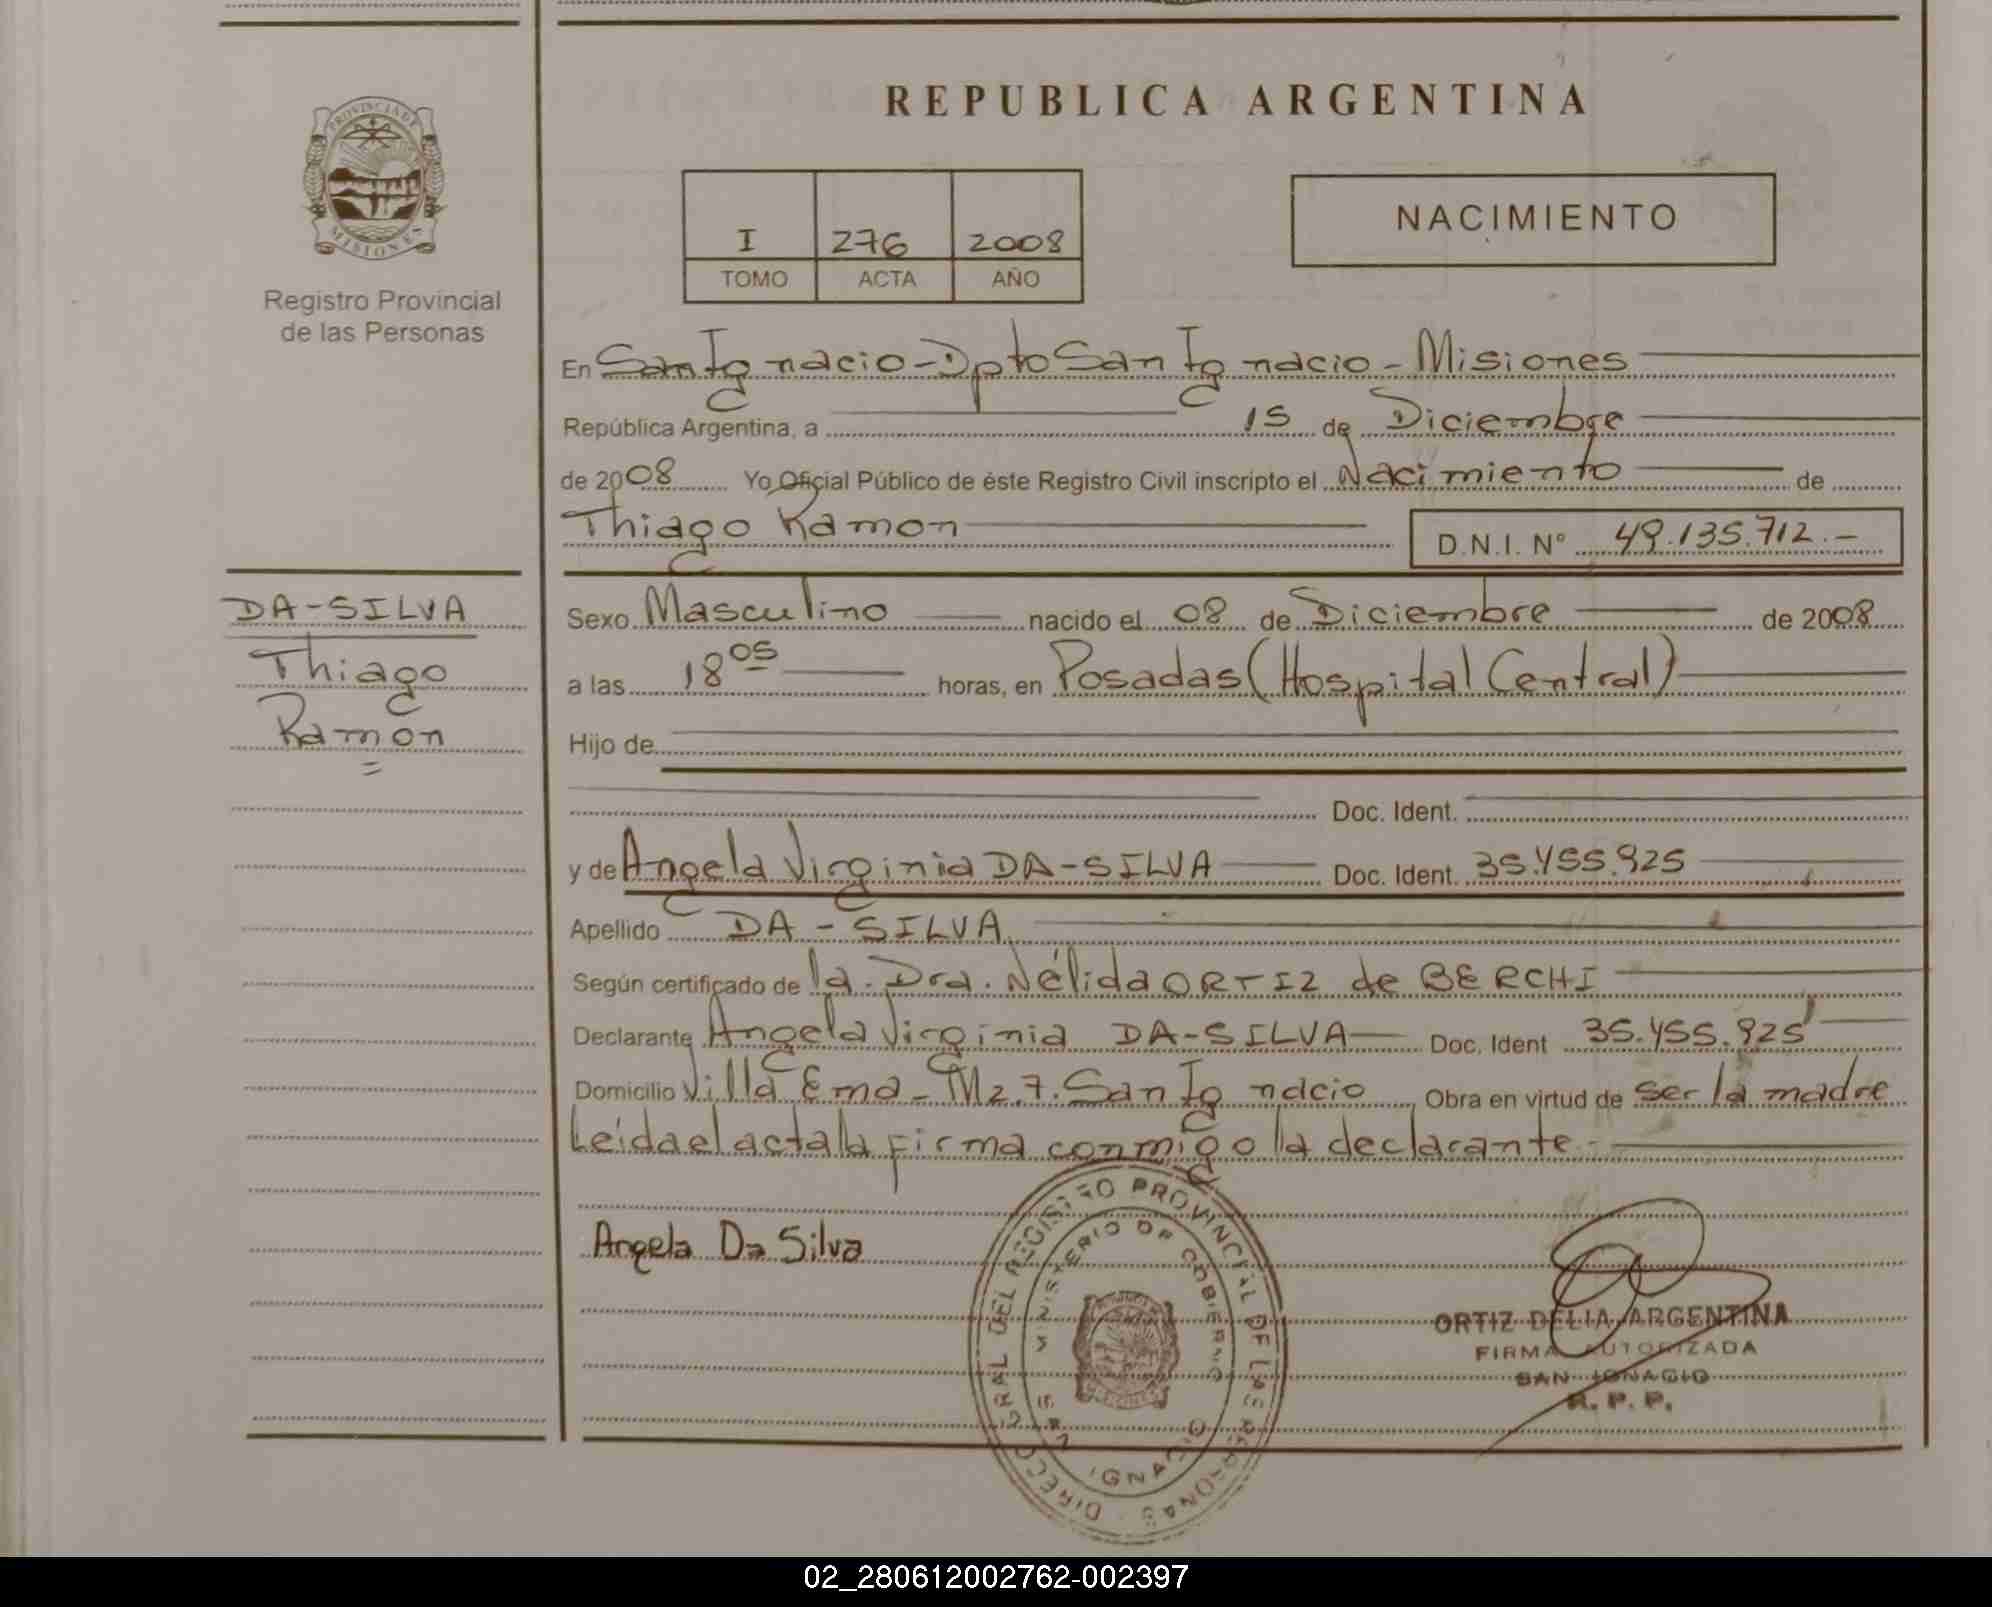 PROVINCIA DE
MISIONES
Registro Provincial
de las Personas
DA-SILVA
Thiago
Ramon
REPUBLICA ARGENTINA
I 276 2008
TOMO ACTA AÑO
NACIMIENTO
En San Ignacio - Dpto San Ignacio - Misiones
República Argentina, a 15 de Diciembre
de 2008 Yo Oficial Público de éste Registro Civil inscripto el Nacimiento de
Thiago Ramon
D.N.I. Nº 49.135.712.-
Sexo Masculino nacido el 08 de Diciembre de 2008
a las 18 05 horas, en Posadas (Hospital Central)
Hijo de
Doc. Ident.
y de Angela Virginia DA-SILVA Doc. Ident. 35.455.925
Apellido DA-SILVA
Según certificado de la Dra. Nélida ORTIZ de BERCHI
Declarante Angela Virginia DA-SILVA Doc. Ident 35.455.925
Domicilio Villa Ema - Mz. 7. San Ignacio Obra en virtud de ser la madre
Leída el acta la firma conmigo la declarante.-
Angela Da Silva
REGISTRO PROVINCIAL DE LAS PERSONAS
MINISTERIO DE GOBIERNO
IGNACIO
ORTIZ DELIA ARGENTINA
FIRMA AUTORIZADA
SAN IGNACIO
R. P. P.
02_280612002762-002397